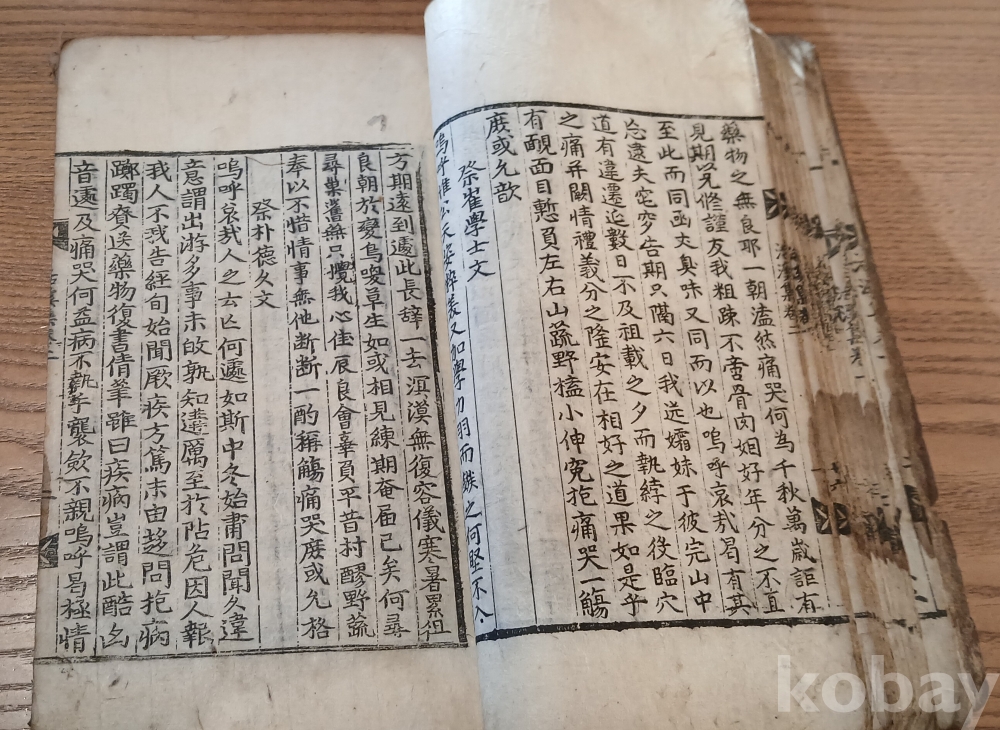 藥物之無良耶一朝溘然痛哭何爲千秋萬歲詎有
見期以兄脩謹友我粗踈不啻骨肉姻好年分之不直
至此而同函丈臭味又同而以也嗚呼哀哉曷有其
忩遽夫窀穸告期只隔六日我送孀妹于彼完山中
道有違遷迤數日不及祖載之夕而執紼之後臨穴
之痛幷闕情禮義分之隆安在相好之道果如是乎
有靦面目慙負左右山蔬野榼小伸寃抱痛哭一觴
庶或允歆
祭崔學士文
嗚呼惟公天姿粹美又加學 羽而鏃之何堅不
方期遠到遽此長辞一去溟漠無復容儀寒暑累徂
良朝於變鳥喚草生如或相見練期奄届已矣何尋
尋巢舊燕只攪我心佳辰良會辜負平昔村醪野蔬
奉以不惜情事無他断断一酌稱觴痛哭庶或允格
祭朴德久文
嗚呼哀哉人之云亡何遽如斯中冬始肅問聞久違
意謂出游多事未的孰知遘厲至於阽危因人報
我人不我告經旬始聞厥疾方篤末由趍問抱病
躑躅脊 藥物復書倩筆雖曰疾病豈謂此酷凶
音遽及痛哭何益病不執手襲斂不親嗚呼曷極情
kobay